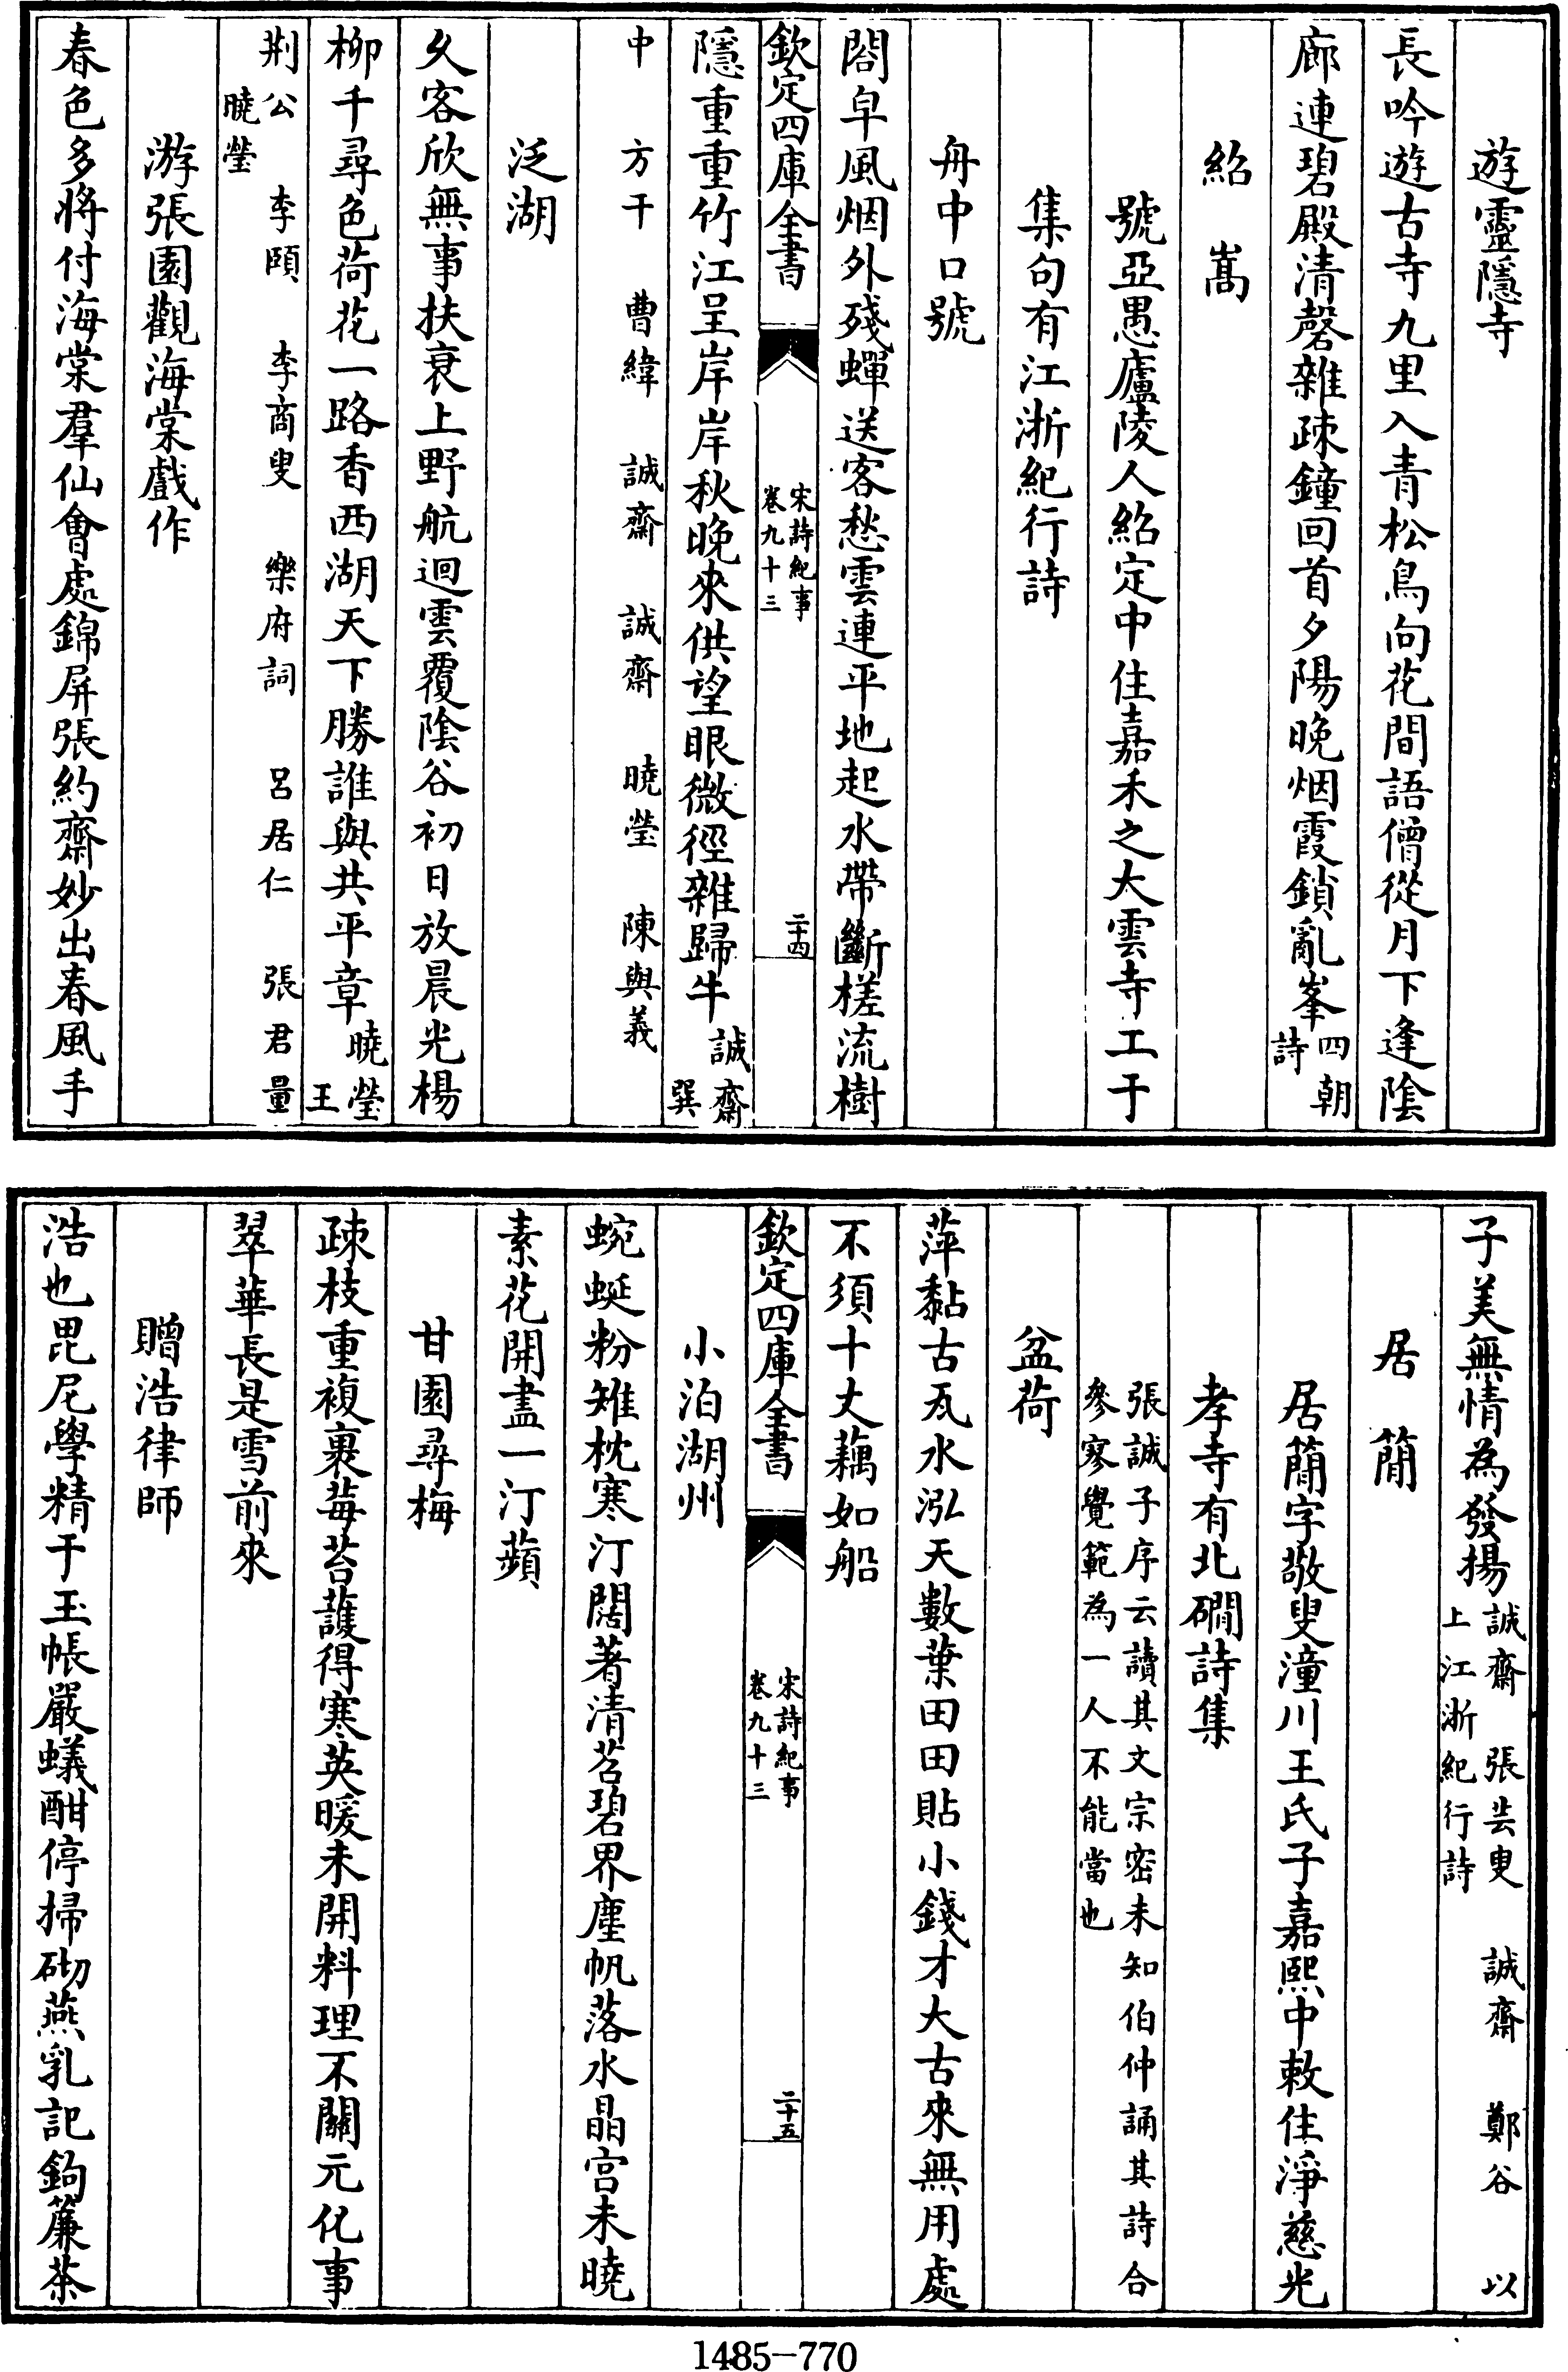 遊靈隱寺
長吟遊古寺九里入青松鳥向花間語僧從月下逢陰
廊連碧殿清磬雜疎鐘回首夕陽晚烟霞鎖亂峯四朝詩
紹嵩
號亞愚廬陵人紹定中住嘉禾之大雲寺工于
集句有江浙紀行詩
舟中口號
閤皁風烟外殘蟬送客愁雲連平地起水帶斷槎流樹
欽定四庫全書
宋詩紀事
卷九十三
二十四
隱重重竹江呈岸岸秋晚來供望眼微徑雜歸牛誠齋 巽
中 方干 曹緯 誠齋 誠齋 曉瑩 陳與義
泛湖
久客欣無事扶衰上野航迴雲覆陰谷初日放晨光楊
柳千尋色荷花一路香西湖天下勝誰與共平章曉瑩 王
荆公 李頤 李商叟 樂府詞 呂居仁 張君量
曉瑩
游張園觀海棠戲作
春色多將付海棠羣仙會處錦屏張約齋妙出春風手
子美無情為發揚誠齋 張芸叟 誠齋 鄭谷 以
上江浙紀行詩
居簡
居簡字敬叟潼川王氏子嘉熙中敕住淨慈光
孝寺有北磵詩集
張誠子序云讀其文宗密未知伯仲誦其詩合
參寥覺範為一人不能當也
盆荷
萍黏古瓦水泓天數葉田田貼小錢才大古來無用處
不須十丈藕如船
欽定四庫全書
宋詩紀事
卷九十三
二十五
小泊湖州
蜿蜒粉雉枕寒汀闊著清苕碧界塵帆落水晶宫未曉
素花開盡一汀蘋
甘園尋梅
疎枝重複裹莓苔護得寒英暖未開料理不關元化事
翠華長是雪前來
贈浩律師
浩也毘尼學精于玉帳嚴蟻酣停掃砌燕乳記鉤簾茶
1485-770